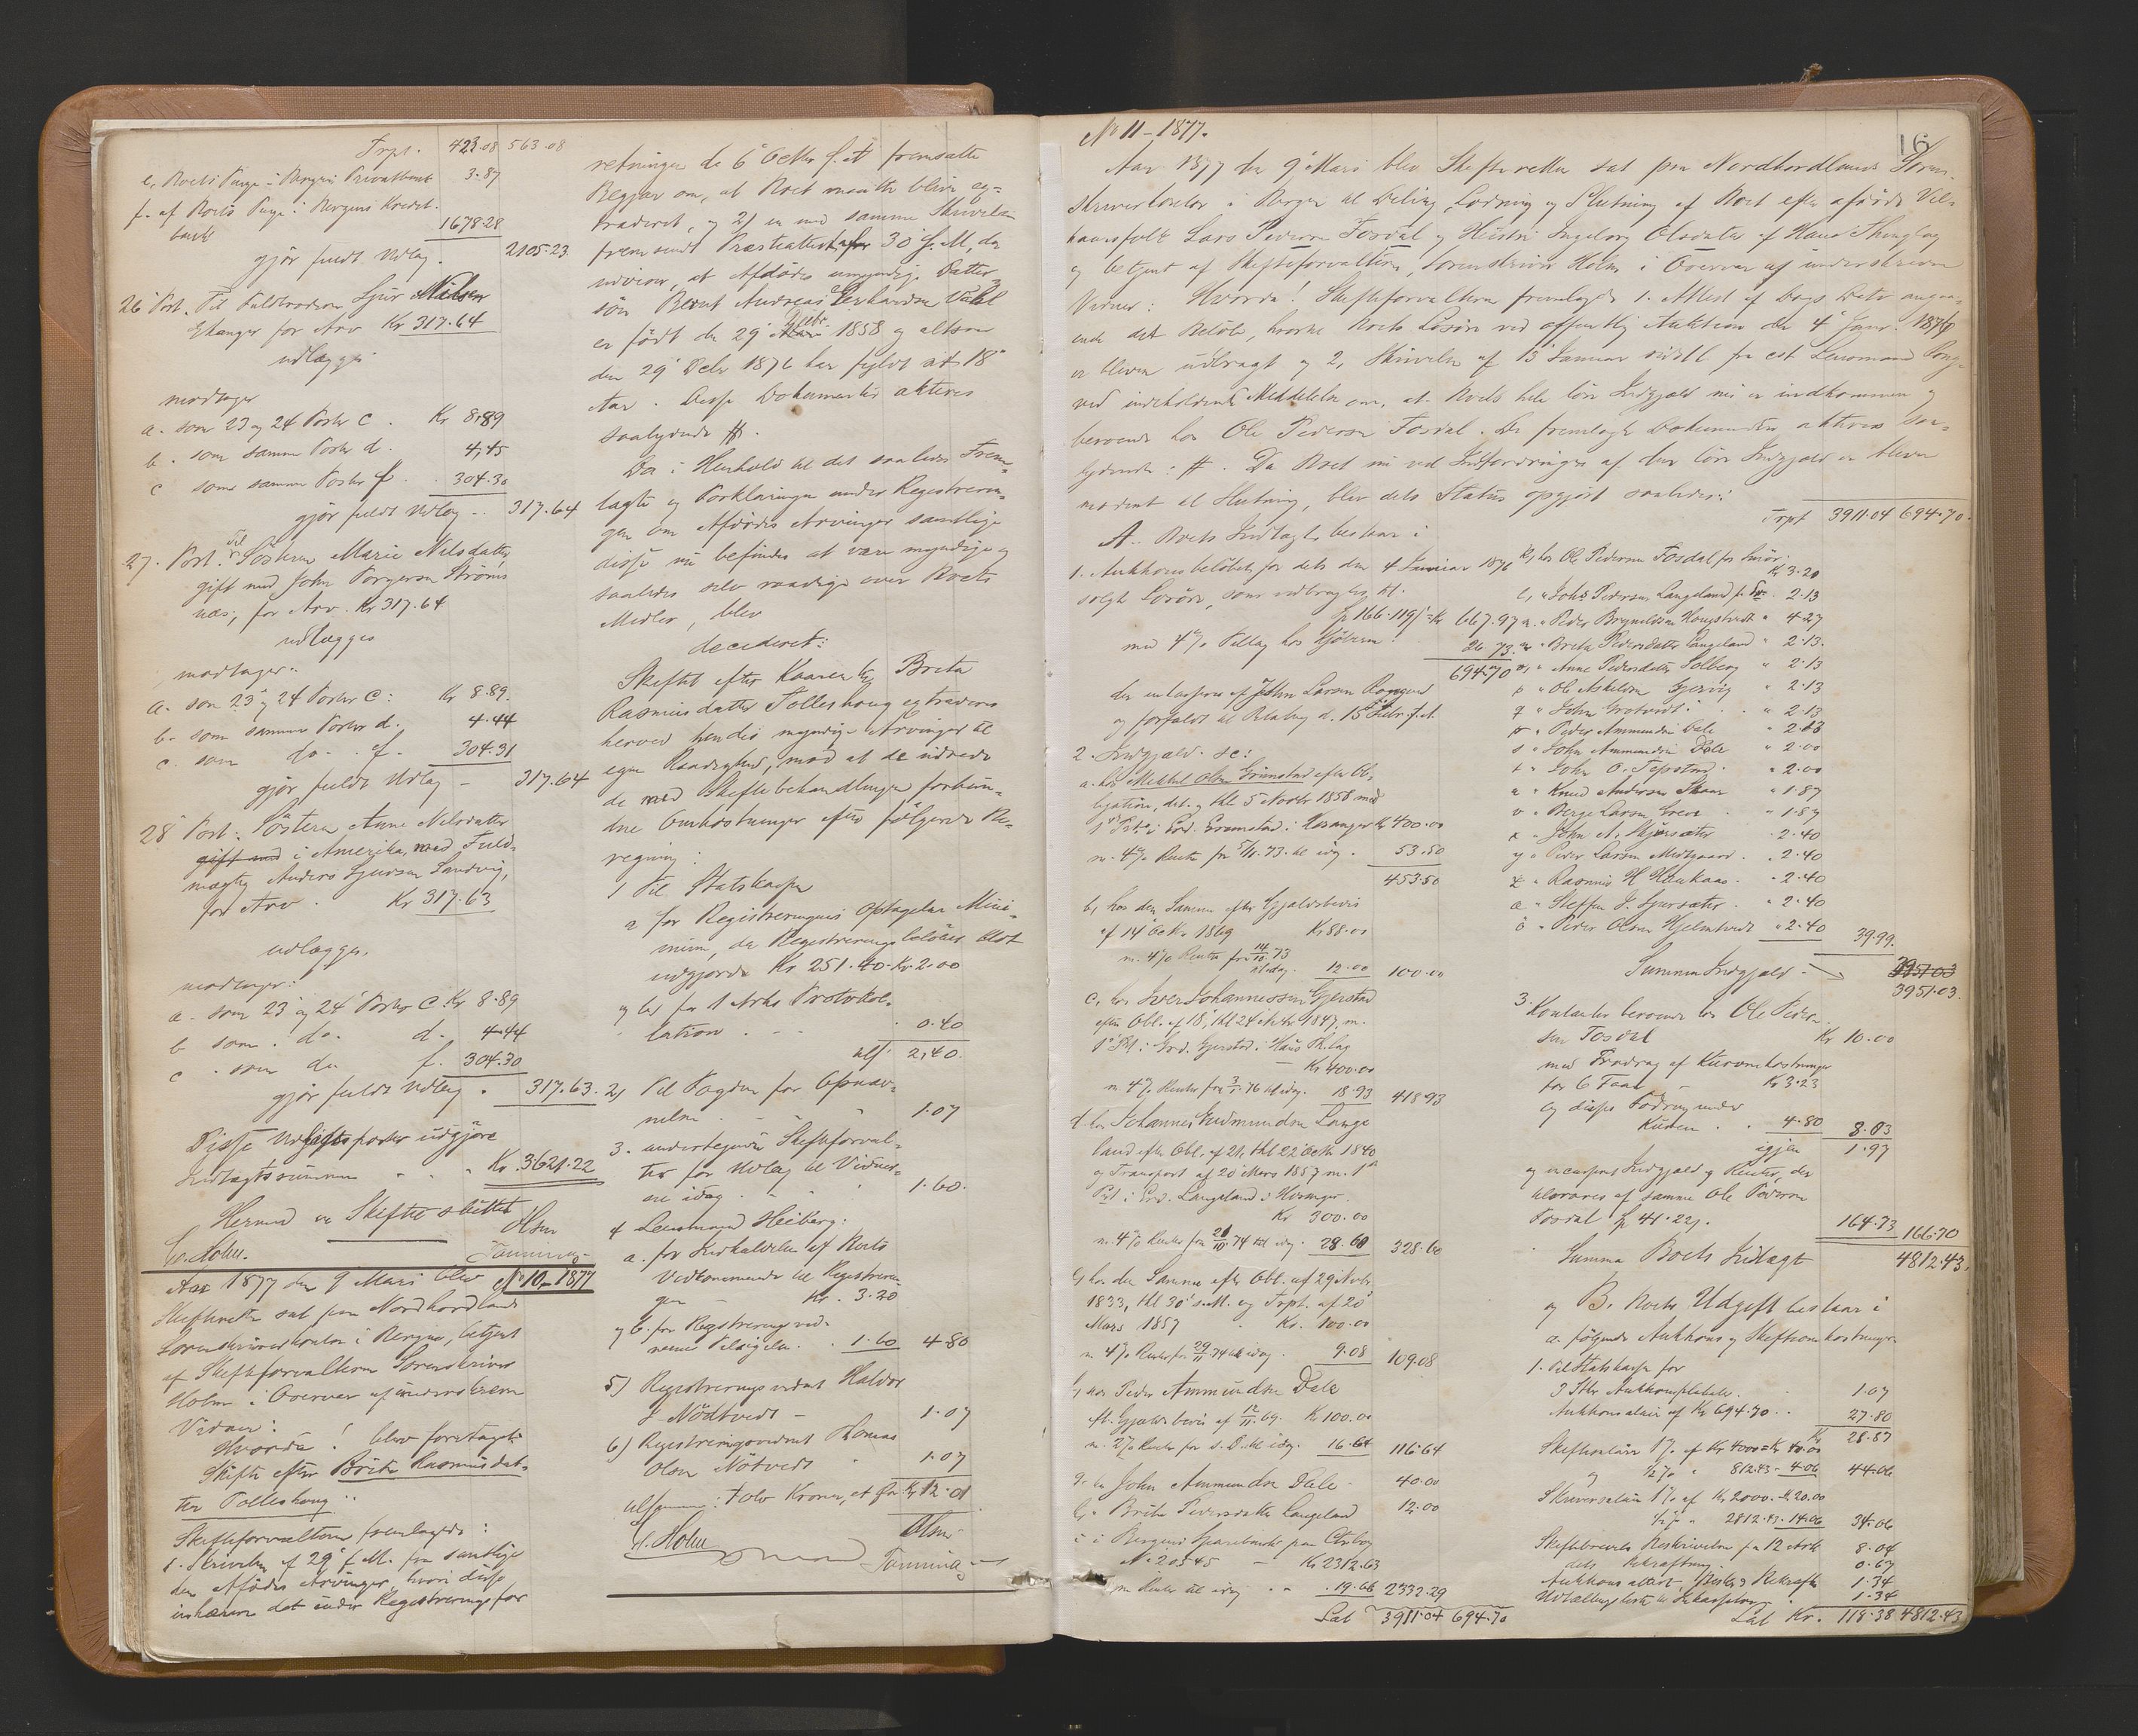 Trpt. 423.08 563.08
e, Boets Penge i Bergens Privatbank 3.87
f. af Boets Penge i Bergens Kredit-
bank 1678.28
gjør fuldt Udlæg. 2105.23
26 Post. Til Sjur Nilsen
for Arv Kr 317.64
udlægges
modtager
a. som 23 og 24 Poster C. Kr 8.89
b. som samme Poster d. 4,45
c som samme Poster f. 304.30
gjør fuldt Udlæg - 317.64
27. Post. Til Søsteren Marie Nilsdatter
gift med John Torgersen Strøms
næs, for Arv. Kr 317.64
udlægges
modtager:
a. som 23 og 24 Poster C: Kr 8.89.
b. som samme Poster d. 4.44
c. som do. f. 304.31
gjør fuldt Udlæg - 317.64
28 Post: Søsteren Anne Nilsdatter
gift med i Amerika, med Fuld-
mægtig Anders Sjursen Sandvig,
for Arv. Kr 317.63
udlægges,
modtager:
a. som 23 og 24 Poster C. Kr 8.89
b som do. d. 4.44
c som do f. 304.30
gjør fuldt Udlæg. 317.63.
Disse Udgiftsposter udgjøre
Indtægtssummen Kr. 3621.22
Hermed er Skiftet sluttet
C. Holm. Olsen
Tønning
No 10 - 1877
Aar 1877 den 9 Marts blev
Skifteret sat paa Nordhordlands
Sorenskriverkontor i Bergen, betjent
af Skifteforvalteren Sorenskriver
Holm i Overvær af underskrevne
Vidner:
Hvorda! blev foretaget
Skifte efter Brite Rasmusdat-
ter Tolleshoug:
Skifteforvalteren fremlagde:
1. Skrivelse af 29 f. M. fra samtlige
den Afdødes Arvinger, hvori disse
det under Registreringsfor
retningen de 6 Octbr f. A fremsatte
Begjær om, at Boet maatte blive ex-
traderet, og 2) en med samme Skrivelse
fremsendt Præsteattest af 30 f. M., der
udviser, at Afdødes umyndige Datter-
søn Bernt Andreas Gerhardsen Vahl
er født den 29 Decbr 1858 og altsaa
den 29 Decbr 1876 har fyldt sit 18
Aar. Disse Dokumenter akteres
saalydende #.
Da i Henhold til det saaledes Frem-
lagte og Forklaringen under Registrerin-
gen om Afdødes Arvinger samtlige
disse nu befindes at være myndige og
saaledes selv raadige over Boets
Midler, blev
decideret:
Skiftet efter Brita
Rasmusdatter Tolleshoug extraderes
herved hendes myndige Arvinger til
egen Raadighed, mod at de udrede
de med Skiftebehandlingen forbun-
dne Omkostninger efter følgende Be-
regning:
1 Til Statskassen
a for Registreringens Optagelse Mini-
mum, da Registreringsbeløbet blot
udgjorde Kr 251.40. Kr. 2.00
og b) for 1 Arks Protokol-
lation 0.40
alt 2,40.
2) Til Fogden for Opnæv-
nelse 1.07
3. undertegnede Skifteforval-
ter for Udlæg til Vidner-
ne idag 1.60.
4 Lensmand Heiberg:
a. for Indkaldelse af Boets
Vedkommende til Registrerin-
gen - Kr. 3.20
og b. for Registreringsvid-
nernes Tilsigelse 1.60 4.80
5) Registreringsvidnet Haldor
J. Nødtvedt - 1.07
6) Registreringsvidnet Thomas
Olsen Nøtvedt 1.07
tilsammen: tolv Kroner, et Øre Kr 12.01
C. Holm Olsen
Tønning
No 11 - 1877.
16
Aar 1877 den 9 Marts blev Skifteretten sat paa Nordhordlands Soren-
skriverkontor i Bergen til Deling, Lodning og Slutning af Boet efter afdøde Vil-
kaarsfolk Lars Pedersen Fosdal og Hustru Ingeborg Olsdatter af Haus Thinglag
og betjent af Skifteforvalteren, Sorenskriver Holm i Overvær af underskrevne
Vidner: Hvorda! Skifteforvalteren fremlagde 1. Attest af Dags Dato angaa-
ende det Beløb, hvortil Boets Løsøre ved offentlig Auktion den 4 Januar 1876
er bleven udbragt og 2, Skrivelse af 13 Januar sidstl fra cst Lensmand
ved indeholdende Meddelelse om, at Boets hele løse Indgjæld nu er indkommen og
beroende hos Ole Pedersen Fosdal. De fremlagte Dokumenter akteres saa-
lydende: #. Da Boet nu ved Indfordringen af den løse Indgjæld er bleven
modent til Slutning, blev dets Status opgjort saaledes:
A. Boets Indtægter bestaar i
1. Auktionsbeløbet for dets den 4 Januar 1876
solgte Løsøre, som udbragtes til
Sp 166.119 s = Kr 667.97
med 4% Tillæg hos Kjøberen 26.73.
694.70
der indkasseres af John Larsen
og forfaldt til Betaling d. 15 Febr. f. A.
2. Indgjæld. sc:
a. hos Mikkel Olsen Grimstad efter Ob-
ligation, dat. og thl 5 Novbr 1858 med
1 Prt i Grd. Grimstad i Hosanger Kr 400.00
m. 4% Rente fra 5/11.73. til idag. 53.50
453.50
b, hos den Samme efter Gjældsbevis
af 14 Octbr 1869 Kr 88.00
m. 4% Rente fra 14/10 73
til idag. 12.00 100.00
c, hos Iver Johannessen Gjerstad
efter Obl. af 18, thl 24 1847, m.
1 Prt i Grd. Gjerstad i Haus Th.lag
Kr 400.00
m. 4% Renter fra 3/1.76 til idag. 18.93 418.93
d. hos Johannes Gudmundsen Lange
land efter Obl. af 21. thl 22 Octbr 1840
og Transport af 20 Marts 1857 m. 1
Prt. i Grd. Langeland i Hosanger.
Kr 300.00
m. 4% Renter fra 21/10.74 til idag. 28.60 328.60
e, hos den Samme efter Obl. af 29 Novbr.
1833, thl 30 s.M. og Trpt. af 20
Marts 1857 Kr. 100.00
m 4% Renter fra 29/11.74 til idag. 9.08 109.08
f, hos Peder Ammundsen Dale
eft. Gjældsbevis af 12/11.69. Kr 100.00
m. 2% Renter fra s. D. til idag. 16.64 116.64
g. hos John Ammundsen Dale 40.00
h, " Brite Pedersdatter Langeland 12.00
i i Bergens Sparebank paa Ctrabog
No 20545 - Kr 2312.63
m Renter til idag. 19.66 2332.29
Lat 3911.04 694.70
Trpt 3911.04 694.70.
k, hos Ole Pedersen Fosdal for Kr 3.20
l, " Johs Pedersen Langeland f. 2.13
m. " Peder Brynildsen Hougstvedt " 4.27
n " Brita Pedersdatter Langeland " 2.13.
o, " Anne Pedersdatter Solberg " 2.13
p " Ole Askeldsen Gjervig " 2.13
q " John Grotvedt " 2.13
r " Peder Ammundsen Dale " 2.13
s " John Ammundsen Dale " 2.00
t " John O. Tepstad " 2.00
u " Knud Andersen Skaar " 1.87
v " Berge Larsen 1.87
x " John A. Skjersæter 2.40
y " Peder Larsen Midtgaard 2.40
z " Rasmus H Haukaas " 2.40
æ " Steffen J. Sjursæter " 2.40
ø " Peder Olsen Hjelmtvedt " 2.40 39.99.
Summa Indgjæld - 3951.03
3951.03.
3. Kontanter beroende hos Ole Peder-
sen Fosdal Kr 10.00
med Fradrag af Kurvomkostninger
for 6 Faar - Kr 3.23
og disses Fodring under
Kuren 4.80 8.03
igjen 1.97
og incasseret Indgjæld og Renter, der
bevares af samme Ole Pedersen
Fosdal Sp 41.22 s. 164.73 166.70
Summa Boets Indtægt 4812.43.
og B. Boets Udgift bestaar i
a. følgende Auktions og Skifteomkostninger
1. Til Statskassen for
3 Stkr Auktionsplakater. 1.07
Auktionssalair af Kr 694.70. 27.80
Kr 28.87
Skiftesalair 1% af Kr 4000 = Kr 40.00
og 1/2% " 812.43 - 4.06 44.06
Skriversalair 1% af Kr 2000. Kr 20.00
1/2% " 2812.43. 14.06 34.06
Skiftebrevets Beskrivelse fra 12 Ark 8.04
dets Bekræftning. 0.67
Auktionsattest, Beskr. & Bekræftn 1.34
1.34
Lat Kr. 118.38 4812.43